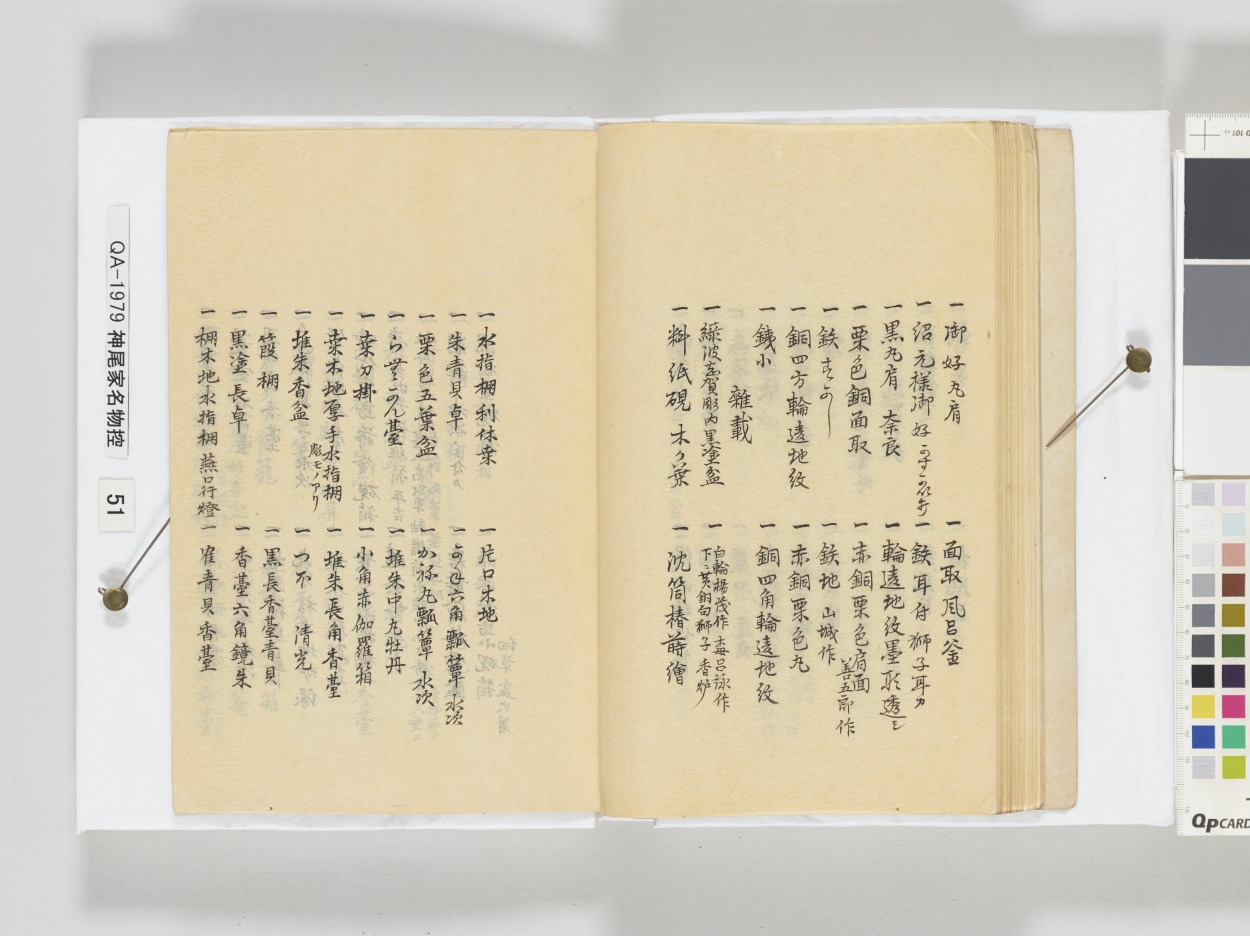 一御好丸肩
一紹元様御好
一黒丸肩 奈良
一栗色銅面取
一鉄
一銅四方輪遠地紋
一銕小
雑載
一緑波志賀彫内黒塗盆
一料紙硯 木の葉
一面取風呂釜
一鉄耳付獅子耳カ
一輪遠地紋墨形透
一赤銅栗色肩面
善五郎作
一鉄地 山城作
一赤銅栗色丸
一銅四角輪遠地紋
一白輪楊茂作
獅子香炉
一沈筒椿蒔繪
一水指棚利休桑
一朱青貝卓
一栗色五葉盆
一らせ
一桑刀掛
一桑木地厚手水指棚
彫モノアリ
一堆朱香盆
一簑棚
一黒塗長卓
一棚木地水指棚 燕口行燈
一片口木地
一六角瓢箪水次
一丸瓢箪水次
一堆朱中丸牡丹
一小角赤伽羅箱
一堆朱長角香臺
一つぶ 清光
一黒長香臺青貝
一香臺六角鏡朱
一青貝香臺
QA-1979 神尾家名物控
51
QPCARD